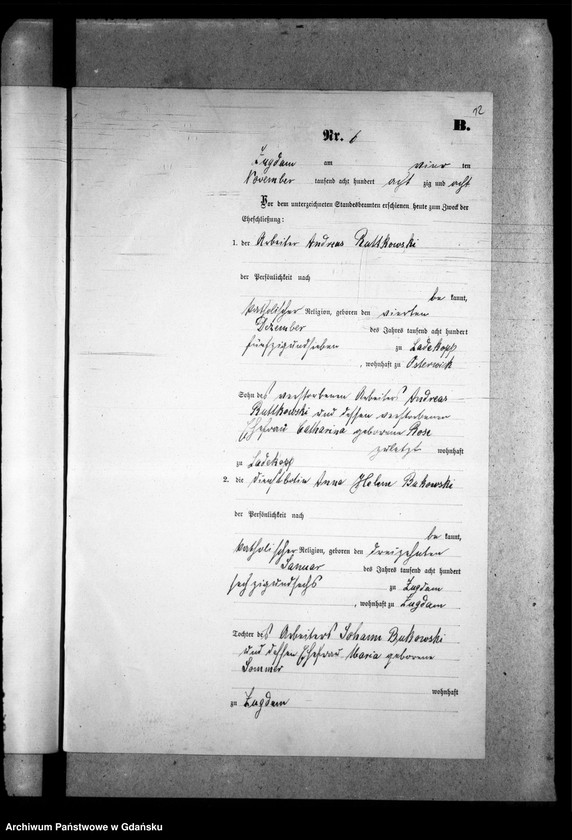 12
B.
Nr. 6
Zugdam am vier ten
November tausend acht hundert acht zig und acht
Vor dem unterzeichneten Standesbeamten erschienen heute zum Zweck der
Eheschließung:
1. der Arbeiter Andreas Rattkowski
der Persönlichkeit nach
be kannt,
katholischer Religion, geboren den vierten
Dezember des Jahres tausend acht hundert
fünfzigundsieben zu Ladekopp
, wohnhaft zu Osterwick
Sohn des verstorbenen Arbeiters Andreas
Rattkowski und dessen verstorbenen
Ehefrau Catharina geborene Rose
zuletzt wohnhaft
zu Ladekopp
2. die Dienstbotin Anna Helena Bukowski
der Persönlichkeit nach
be kannt,
katholischer Religion, geboren den dreizehnten
Januar des Jahres tausend acht hundert
sechzigundsechs zu Zugdam
, wohnhaft zu Zugdam
Tochter des Arbeiters Johann Bukowski
und dessen Ehefrau Maria geborene
Sommer
wohnhaft
zu Zugdam
Archiwum Państwowe w Gdańsku